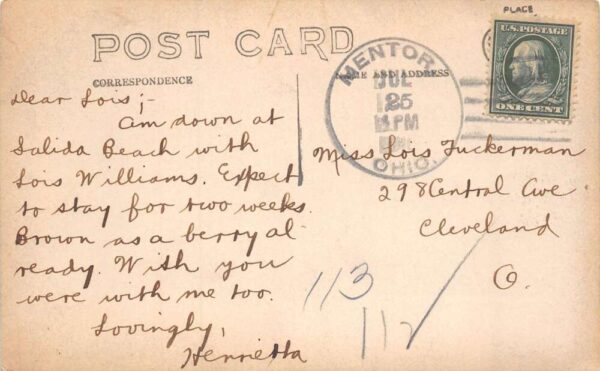 PLACE
POST CARD
CORRESPONDENCE
NAME AND ADDRESS
U.S. POSTAGE
ONE CENT
MENTOR,
JUL
25
PM
OHIO.
Dear Lois;-
Am down at
Salida Beach with
Lois Williams. Expect
to stay for two weeks.
Brown as a berry al-
ready. Wish you
were with me too.
Lovingly,
Henrietta
Miss Lois Tuckerman
298 Central Ave.
Cleveland
O.
113
112